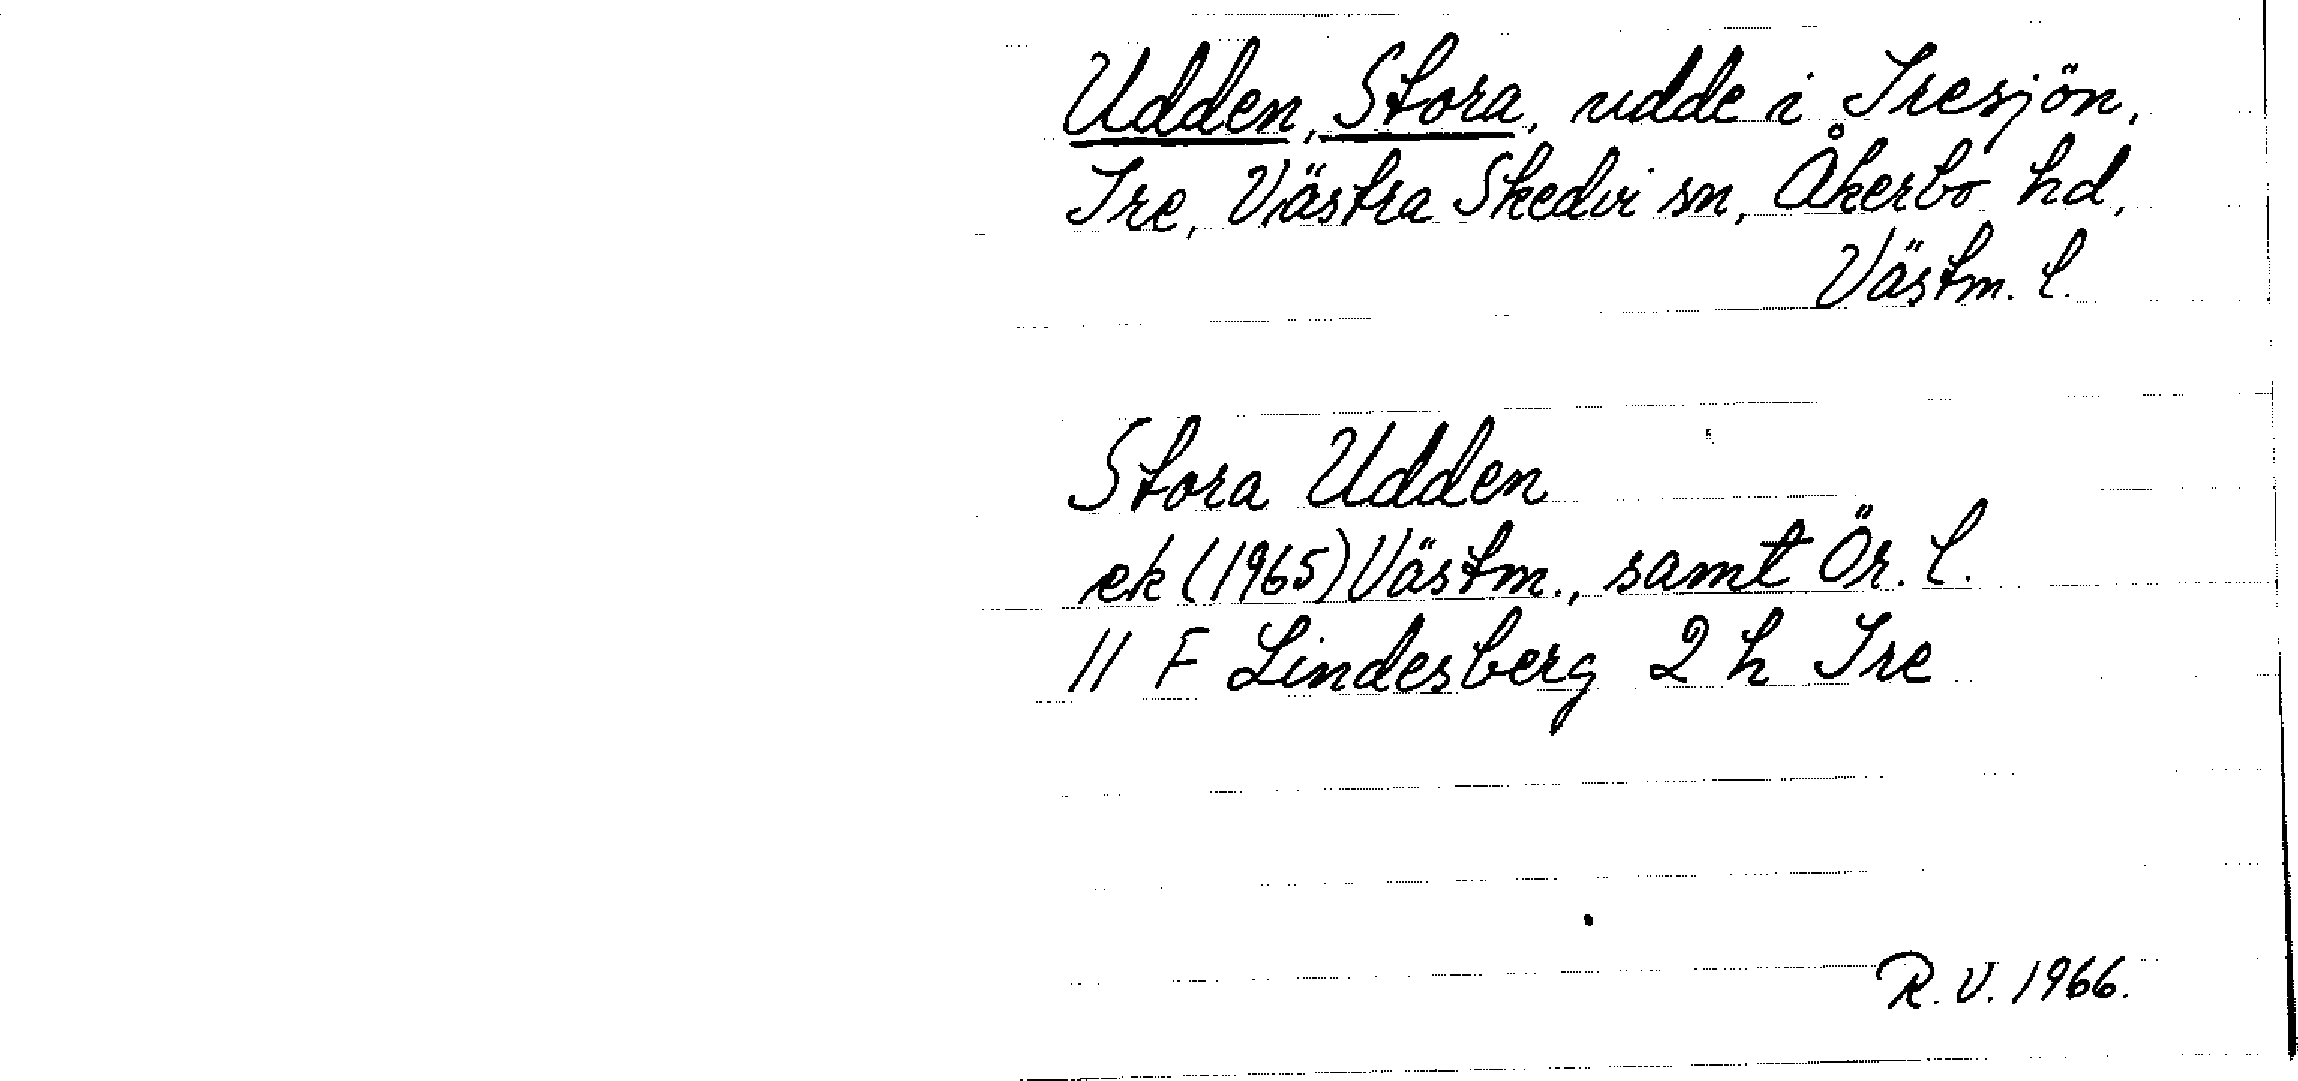 Udden, Stora, udde i Iresjön,
Ire, Västra Skedvi sn, Åkerbo hd,
Västm. l.
Stora Udden
ek (1965) Västm., samt Ör. l.
11 F Lindesberg 2 h Ire
R. V. 1966.